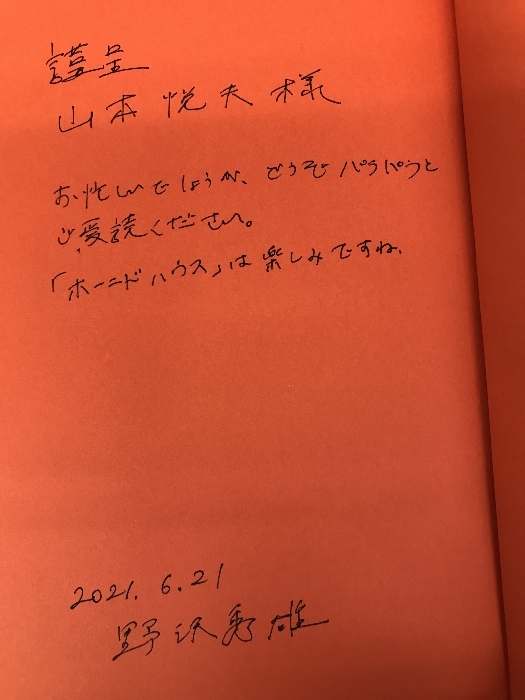 謹呈
山本悦夫様
お忙しいでしょうが、どうぞパラパラと
ご愛読ください。
「ホーニドハウス」は楽しみですね、
2021.6.21
野沢秀雄